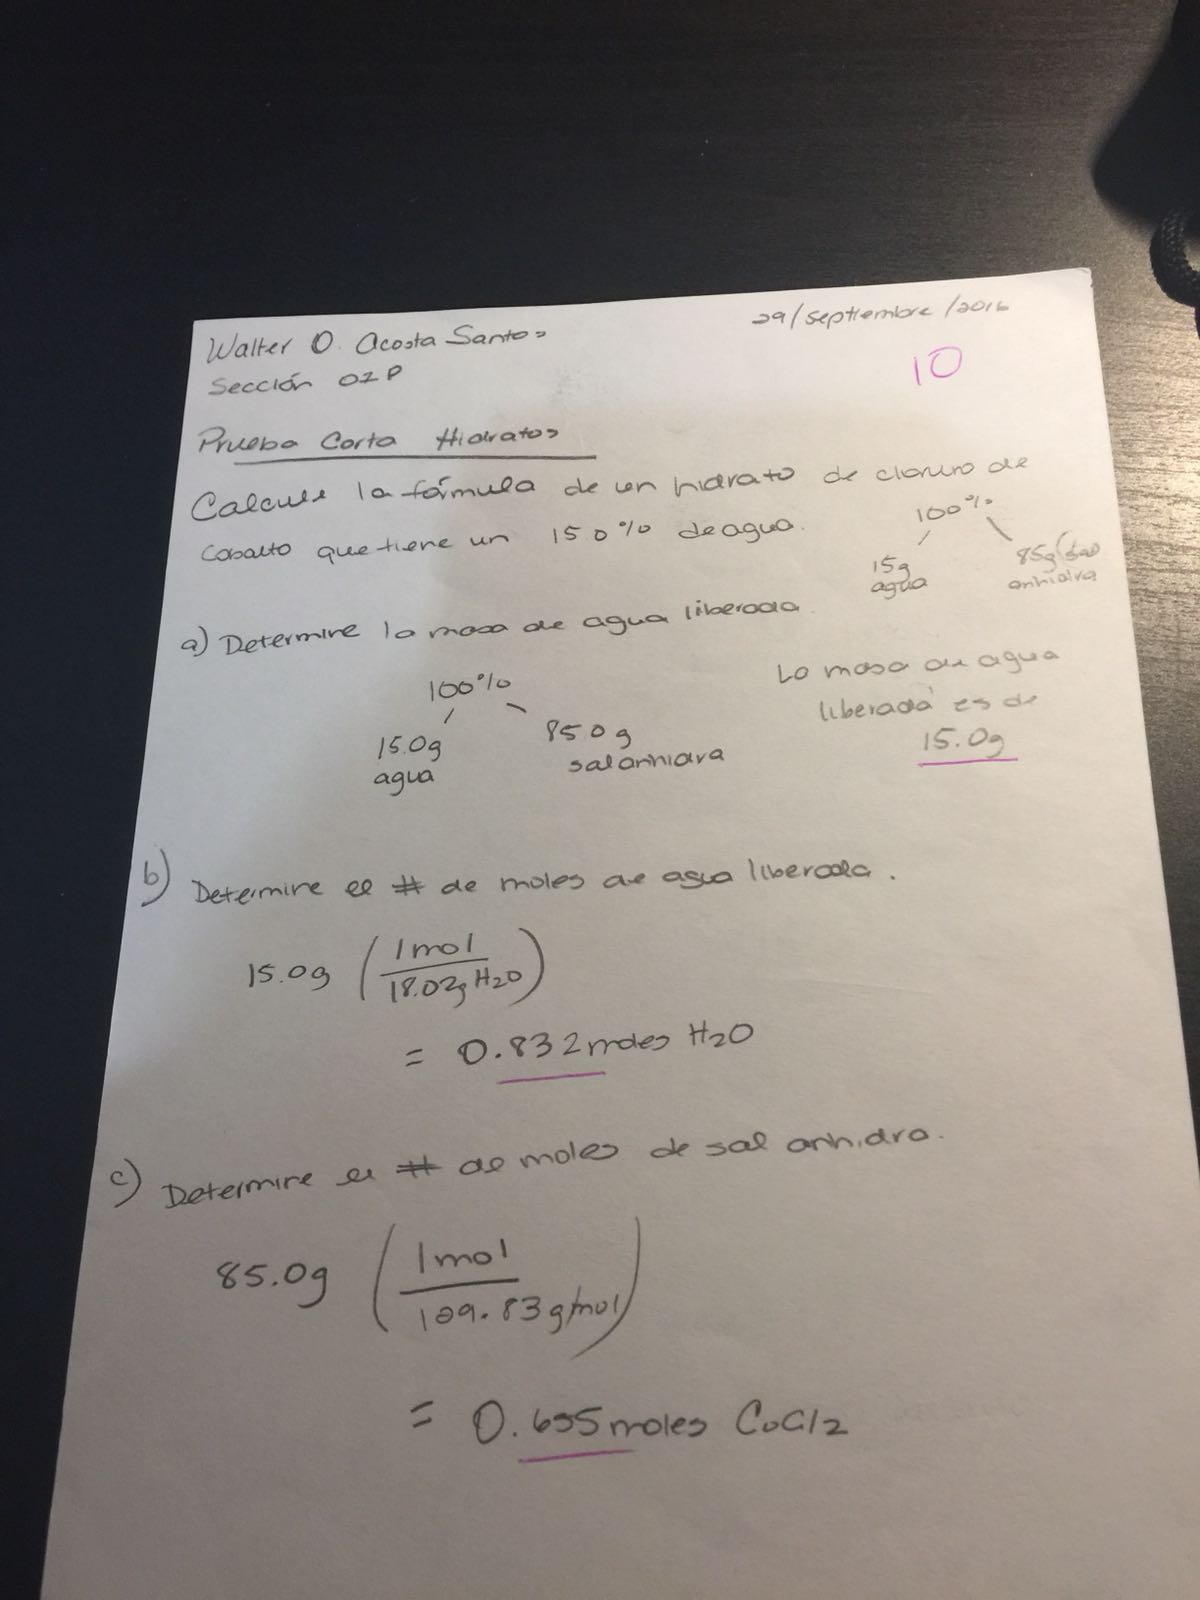 Walter O. Acosta Santos
29/septiembre/2016
Sección 02P
10
Prueba Corta Hidratos
Calcule la fórmula de un hidrato de cloruro de
cobalto que tiene un 15.0% de agua.
100%
15g
agua
85g
anhidra
a) Determine la masa de agua liberada.
100%
15.0g
agua
85.0g
sal anhidra
La masa de agua
liberada es de
15.0g
b) Determine el # de moles de agua liberada.
15.0g (1mol
18.02g H2O)
= 0.832 moles H2O
c) Determine el # de moles de sal anhidra.
85.0g (1mol
129.83g/mol)
= 0.655 moles CoCl2